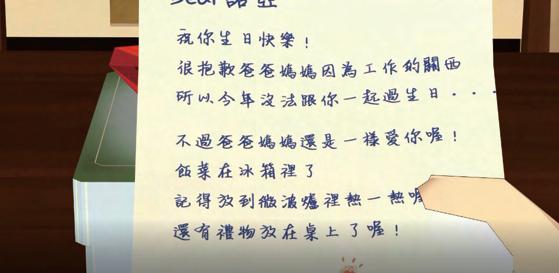 祝你生日快樂!
很抱歉爸爸媽媽因為工作的關西
所以今年沒法跟你一起過生日...
不過爸爸媽媽還是一樣愛你喔!
飯菜在冰箱裡了
記得放到微波爐裡熱一熱喔
還有禮物放在桌上了喔!